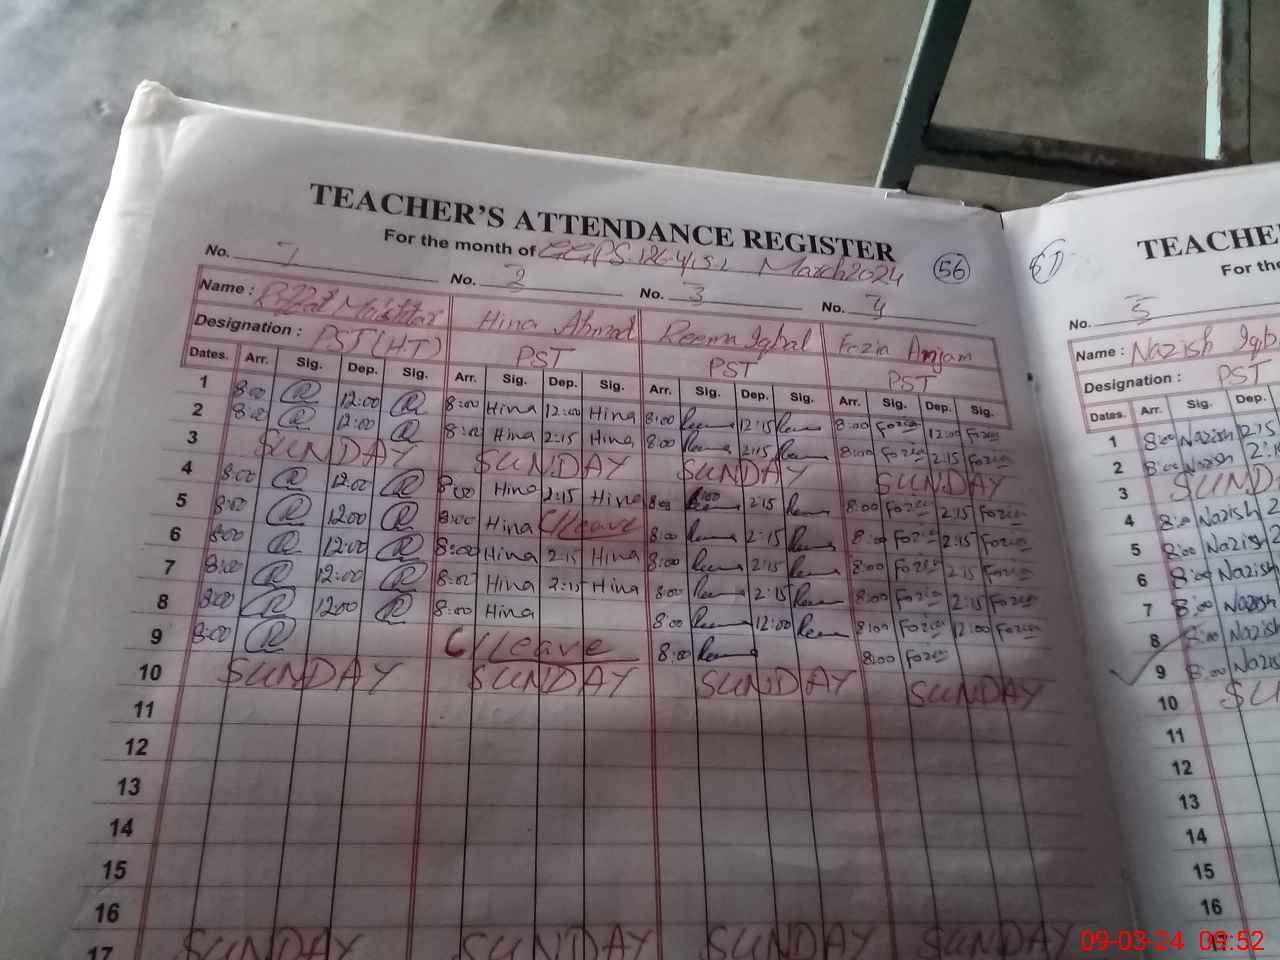 TEACHER'S ATTENDANCE REGISTER
For the month of March 2024
56
No. 1 No. 2 No. 3 No. 4
Name : Hina Ahmad Reema Iqbal Fozia Anjam
Designation : PST (H.T) PST PST PST
Dates. Arr. Sig. Dep. Sig. Arr. Sig. Dep. Sig. Arr. Sig. Dep. Sig. Arr. Sig. Dep. Sig.
1 8:00 12:00 8:00 Hina 12:00 Hina 8:00 12:15 8:00 Fozia 12:00 Fozia
2 8:00 12:00 8:00 Hina 2:15 Hina 8:00 2:15 8:00 Fozia 2:15 Fozia
3 SUNDAY SUNDAY SUNDAY SUNDAY
4 8:00 12:00 8:00 Hina 2:15 Hina 8:00 2:15 8:00 Fozia 2:15 Fozia
5 8:00 12:00 8:00 Hina C/Leave 8:00 2:15 8:00 Fozia 2:15 Fozia
6 8:00 12:00 8:00 Hina 2:15 Hina 8:00 2:15 8:00 Fozia 2:15 Fozia
7 8:00 12:00 8:00 Hina 2:15 Hina 8:00 2:15 8:00 Fozia 2:15 Fozia
8 8:00 12:00 8:00 Hina 8:00 12:00 8:00 Fozia 12:00 Fozia
9 8:00 C/Leave 8:00 8:00 Fozia
10 SUNDAY SUNDAY SUNDAY SUNDAY
11
12
13
14
15
16
17 SUNDAY SUNDAY SUNDAY SUNDAY
57
TEACHE
For the
No. 5
Name : Nazish Iqb
Designation : PST
Dates. Arr. Sig. Dep.
1 8:00 Nazish 2:15
2 8:00 Nazish
3 SUND
4 8:00 Nazish 2
5 8:00 Nazish 2
6 8:00 Nazish
7 8:00 Nazish
8 8:00 Nazish
9 8:00 Nazis
10 SU
11
12
13
14
15
16
17
09-03-24 09:52